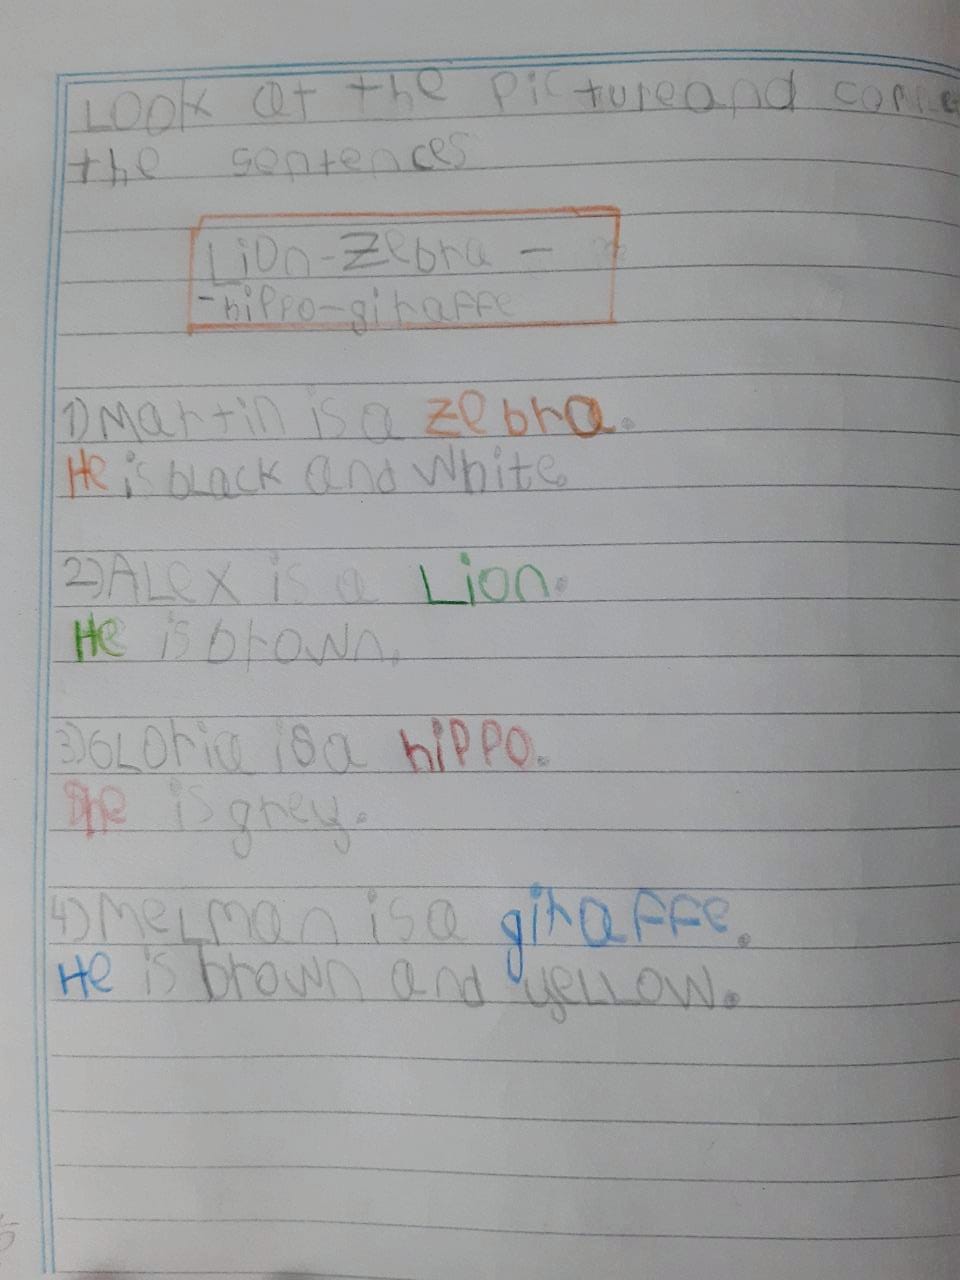 Look at the picture and
the sentences
Lion-Zebra -
-hippo-giraffe
1) Martin is a zebra.
He is black and white
2) ALex is a Lion.
He is brown.
3) GLoria is a hippo.
She is grey.
4) MeLman is a giraffe.
He is brown and yeLLow.